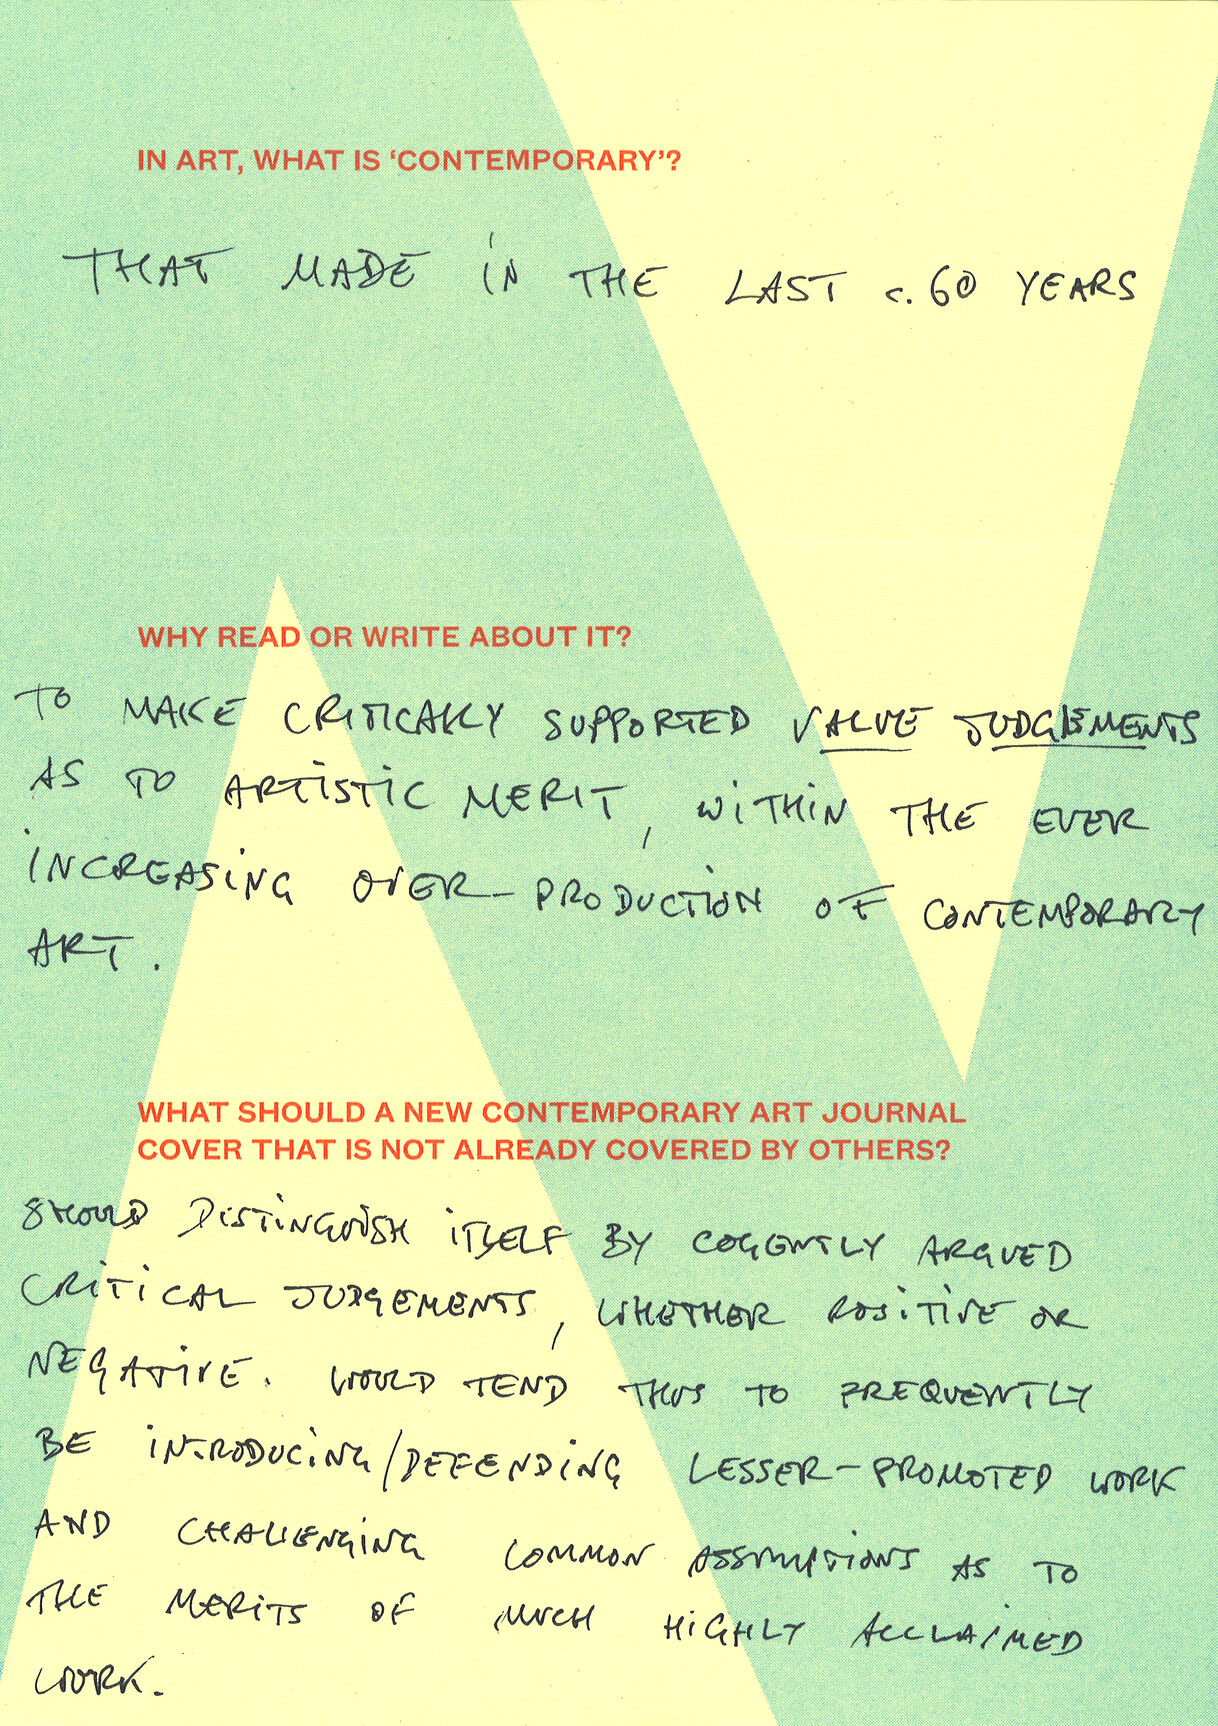 IN ART, WHAT IS ‘CONTEMPORARY’?
THAT MADE IN THE LAST c. 60 YEARS
WHY READ OR WRITE ABOUT IT?
TO MAKE CRITICALLY SUPPORTED VALUE JUDGEMENTS
AS TO ARTISTIC MERIT, WITHIN THE EVER
INCREASING OVER-PRODUCTION OF CONTEMPORARY
ART.
WHAT SHOULD A NEW CONTEMPORARY ART JOURNAL
COVER THAT IS NOT ALREADY COVERED BY OTHERS?
SHOULD DISTINGUISH ITSELF BY COGENTLY ARGUED
CRITICAL JUDGEMENTS, WHETHER POSITIVE OR
NEGATIVE. WOULD TEND THUS TO FREQUENTLY
BE INTRODUCING/DEFENDING LESSER-PROMOTED WORK
AND CHALLENGING COMMON ASSUMPTIONS AS TO
THE MERITS OF MUCH HIGHLY ACCLAIMED
WORK.